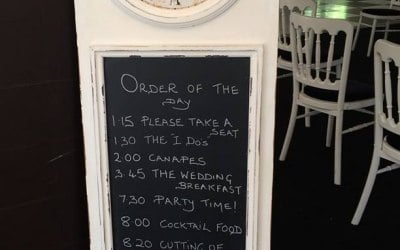 ORDER OF THE
DAY
1·15 PLEASE TAKE A
SEAT
1·30 THE 'I DO'S'
2·00 CANAPES
3·45 THE WEDDING
BREAKFAST
7·30 PARTY TIME!
8·00 COCKTAIL FOOD
8·20 CUTTING OF